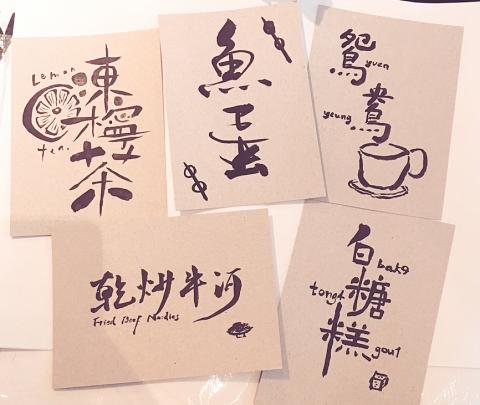 Lemon
凍檸茶
tea.
魚蛋
鴛 yuen
yeung 鴦
乾炒牛河
Fried Beef Noodles
白 bak9
tong4 糖
糕 gou1